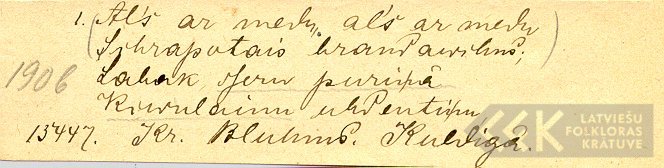 1. Al's ar medu, al's ar medu
(Schrapotais brandawihns;)
1906 Labak dseru puriņâ
Kumelaiņu uhdentiņu
13447. Kr. Bluhms. Kuldīgā.
LATVIEŠU
FOLKLORAS
KRĀTUVE